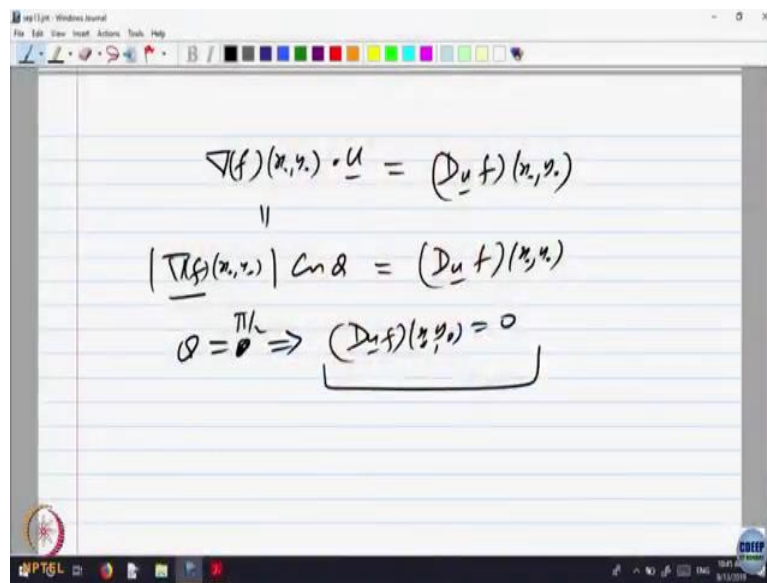 sep13.jnt - Windows Journal
File Edit View Insert Actions Tools Help
B I
∇(f)(x₀,y₀) · u = (D_u f)(x₀,y₀)
||
|∇(f)(x₀,y₀)| Cos θ = (D_u f)(x₀,y₀)
θ = π/2 ⇒ (D_u f)(x₀,y₀) = 0
NPTEL
CDEEP
ENG
9/13/2019